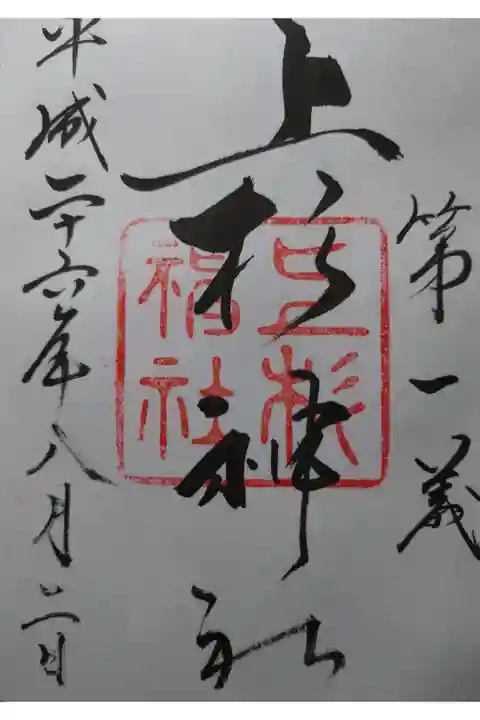 第一義
上杉神社
上杉
神社
平成二十六年八月二日